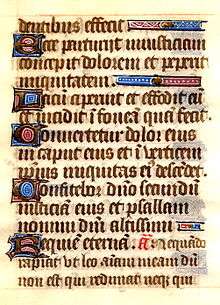 dentibus effecit
Ecce parturit iniusticiam
concepit dolorem et peperit
iniquitatem.
Lacum aperuit et effodit eū
et incidit ī foueā quā fecit.
Conuertetur dolor eius
in caput eius et ī verticem
ipsius iniquitas ei descēdet.
Confitebor dn̄o secundū
iusticiā eius et psallam
nomini dn̄i altissimi
Requiē eternā. A Nequādo
rapiat vt leo animā meam dū
non est qui redimat neqȝ qui